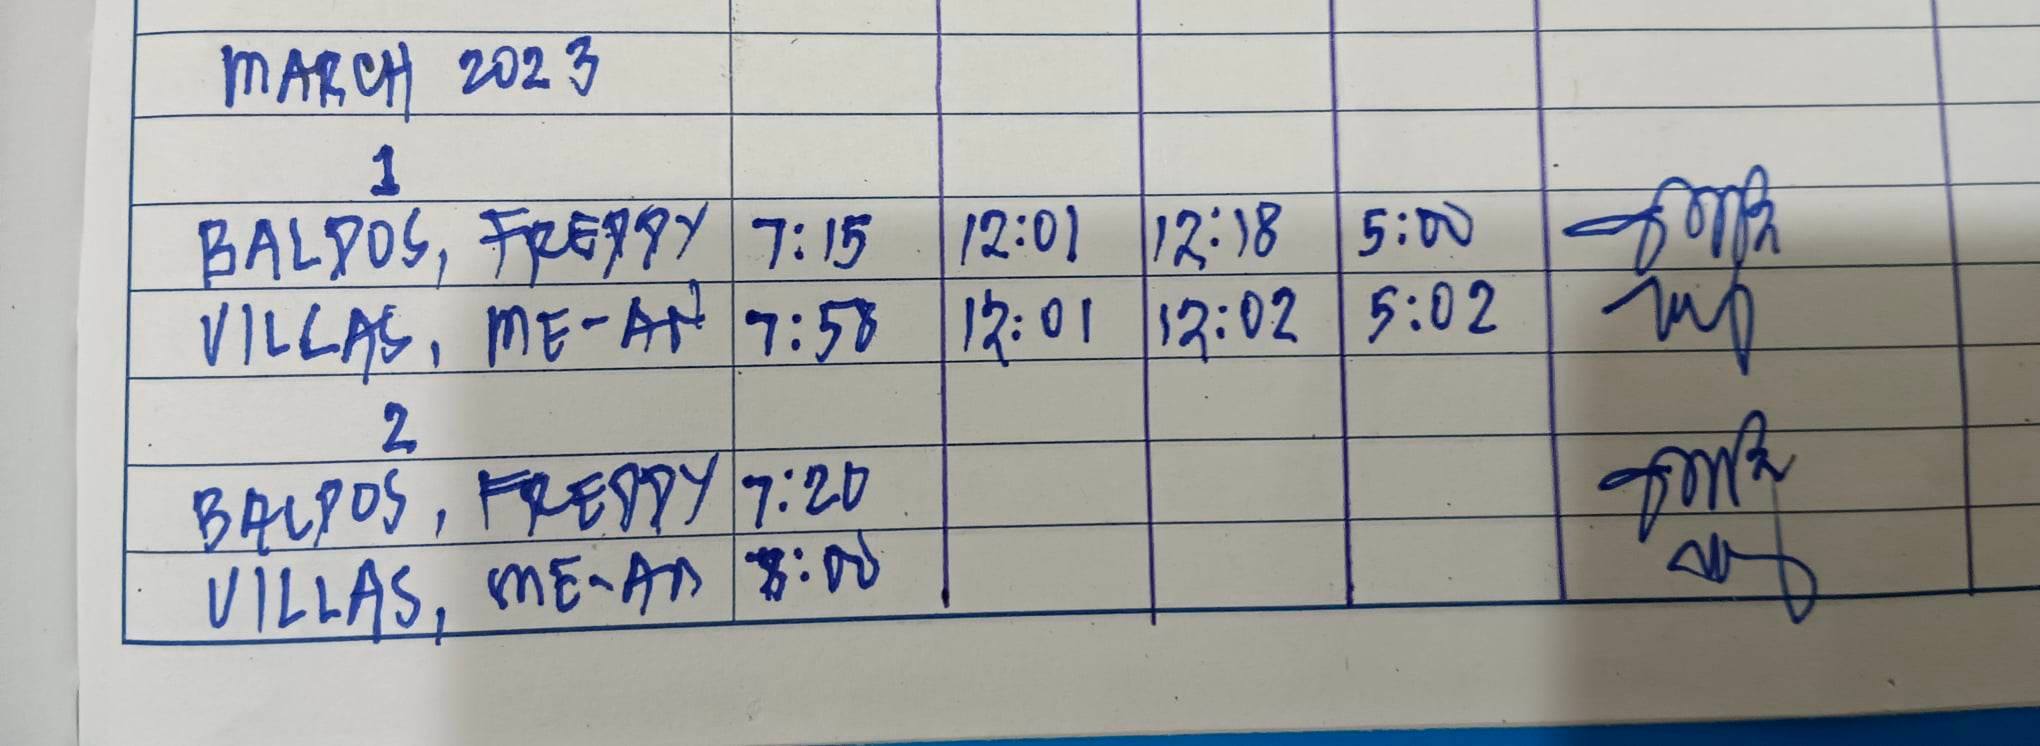 MARCH 2023
1
BALDOS, FREDDY 7:15 12:01 12:18 5:00
VILLAS, ME-AN 7:58 12:01 12:02 5:02
2
BALDOS, FREDDY 7:20
VILLAS, ME-AN 8:00